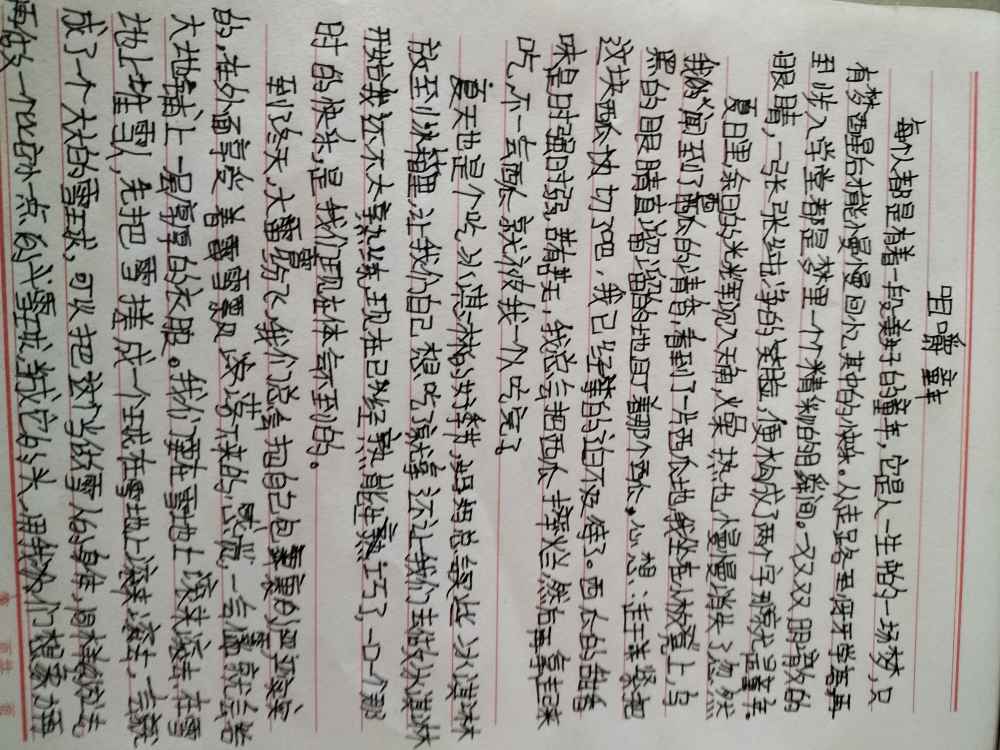 咀嚼童年
每人都是有着一段美好的童年,它是人一生中的一场梦,只
有梦醒后才能慢慢回忆其中的小快乐。从走路到牙牙学语再
到步入学堂都是梦里一个个精彩的瞬间。一双双明澈的
眼睛,一张张纯净的笑脸,便构成了两个字那就是童年。
夏日里余日的光辉沉入天南,燥热也慢慢消失了忽然
我仿闻到了西瓜的清香,看到了一片西瓜地我坐在小板凳上,乌
黑的眼睛直溜溜的地盯着那个西瓜。心想:连王
这块西瓜快切了吧,我已经等的迫不及待了。西瓜的甜味
味是时强时弱,若有若无,我总会把西瓜然后再拿起来
吃,不一会西瓜就被我一个人吃完了
夏天也是个吃冰淇淋的好季节,妈妈总会买些冰淇淋
放到冰箱里,让我们自己想吃了就拿还让我们去做冰淇淋
开始我还不太熟练,现在已经熟能生巧了,一口一个那
时的快乐,是我们现在体会不到的。
到了冬天,大雪纷飞,我们总会把自己包裹的严严实实
的,在外面享受着雪飘落下来的感觉,一会儿就会给
大地铺上一层厚厚的衣服。我们便在雪地上滚来滚去在雪
地上堆雪人,先把雪揉成一个球在雪地上滚来滚去,一会就
成了一个大大的雪球,可以把这个当做雪人的身体,同样的方法
再做一个比它小一点的雪球,当成它的头,用我们想象力